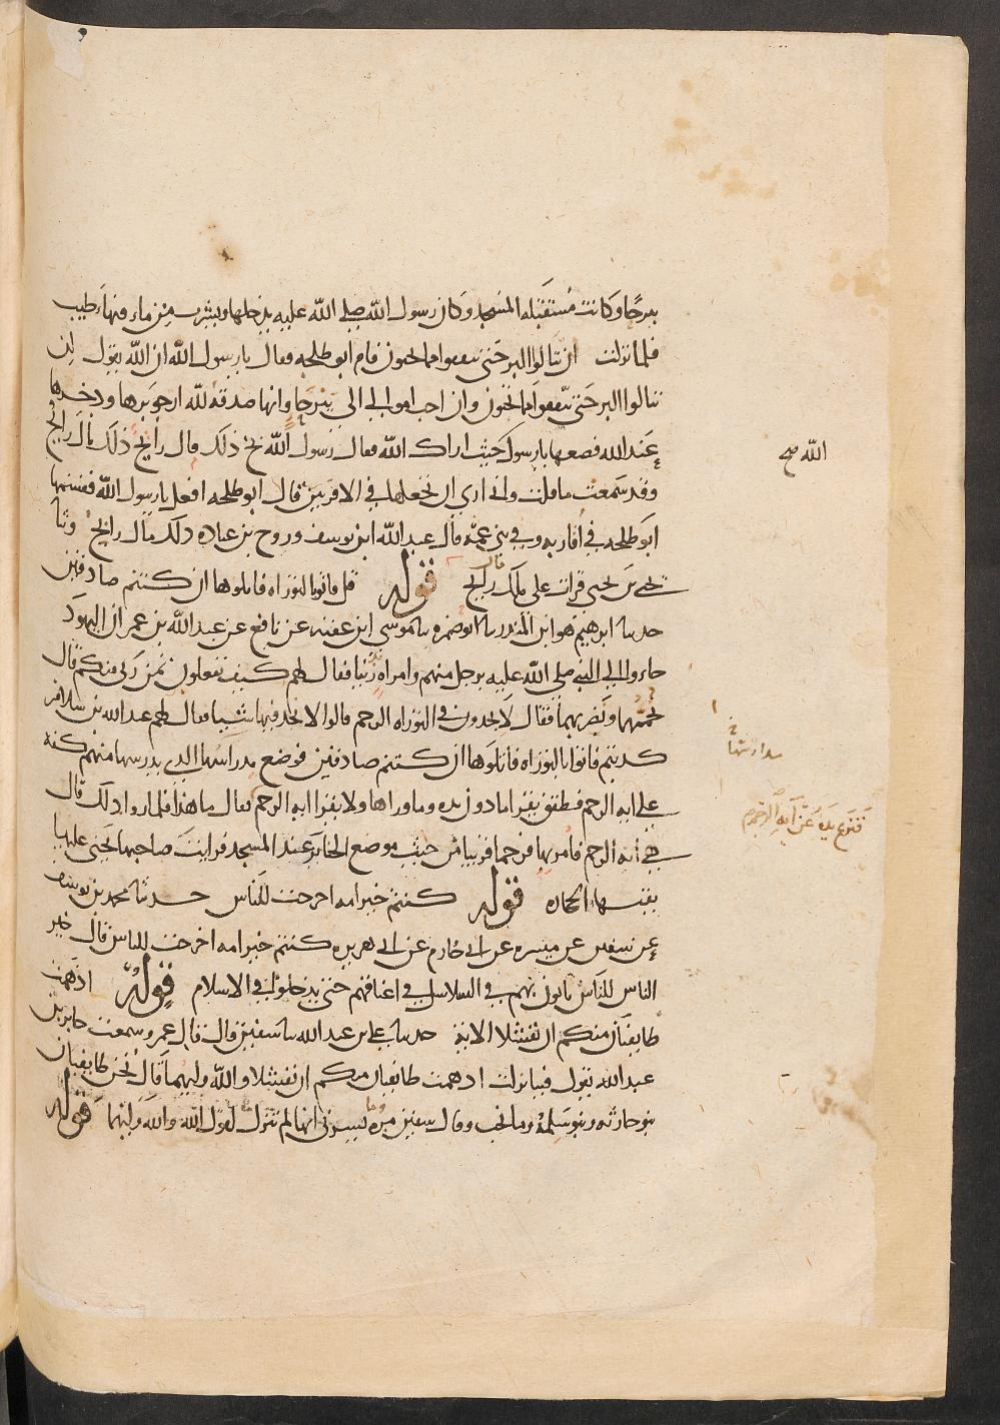 بيرحا وكانت مستقبلة المسجد وكان رسول الله صلى الله عليه يدخلها ويشرب من ماء فيها طيب
فلما انزلت ان تنالوا البر حتى تنفقوا مما تحبون قام ابو طلحه فقال يا رسول الله ان الله يقول لن
تنالوا البر حتى تنفقوا مما تحبون وان احب اموالي الي بيرحا وانها صدقة لله ارجو برها وذخرها
عند الله فضعها يا رسول حيث اراك الله فقال رسول الله بخ ذلك مال رايح ذلك مال رابح
الله صح
وقد سمعت ما قلت واني اري ان تجعلها في الاقربين قال ابو طلحه افعل يا رسول الله فقسمها
ابو طلحه في اقاربه وفي بني عمه قال عبد الله ابن يوسف وروح بن عباده ذلك مال رابح وثنا
يحيى بن يحيى قرات على ملك رايح قوله قل فاتوا بالتوراه فاتلوها ان كنتم صادقين
مال
حدثنا ابرهيم هو ابن المنذر ثنا ابو ضمره ثنا موسى ابن عقبه عن نافع عن عبد الله بن عمر ان اليهود
جاءوا الي النبي صلى الله عليه برجل منهم وامراه زنيا فقال لهم كيف تفعلون بمن زنى منكم قال
نحممهما ونضربهما فقال لا تجدون في التوراه الرجم قالوا لا نجد فيها شيا فقال لهم عبد الله بن سلام
كذبتم فاتوا بالتوراه فاتلوها ان كنتم صادقين فوضع مدراسها الذي يدرسها منهم كفه
مدارسها
على ايه الرجم فطفق يقرا ما دون يده وما وراها ولا يقرا ايه الرجم فقال ما هذا فلما راوا ذلك قال
فنزع يده عن آية الرجم
هي آية الرجم فامر بهما فرجما قريبا من حيث موضع الجنايز عند المسجد فرايت صاحبها يجني عليها
يقيها الحجاره قوله كنتم خير امه اخرجت للناس حدثنا محمد بن يوسف
عن سفين عن ميسره عن ابي حازم عن ابي هريره كنتم خير امه اخرجت للناس قال خير
الناس للناس ياتون بهم في السلاسل في اعناقهم حتى يدخلوا في الاسلام قوله اذ همت
طايفتان منكم ان تفشلا الاية حدثنا علي بن عبد الله ثنا سفين قال قال عمرو سمعت جابر بن
عبد الله يقول فينا نزلت اذ همت طايفتان منكم ان تفشلا والله وليهما قال نحن طايفتان
بنو حارثه وبنو سلمة وما نحب وقال سفين مره وما يسرني انها لم تنزل لقول الله والله وليهما قوله